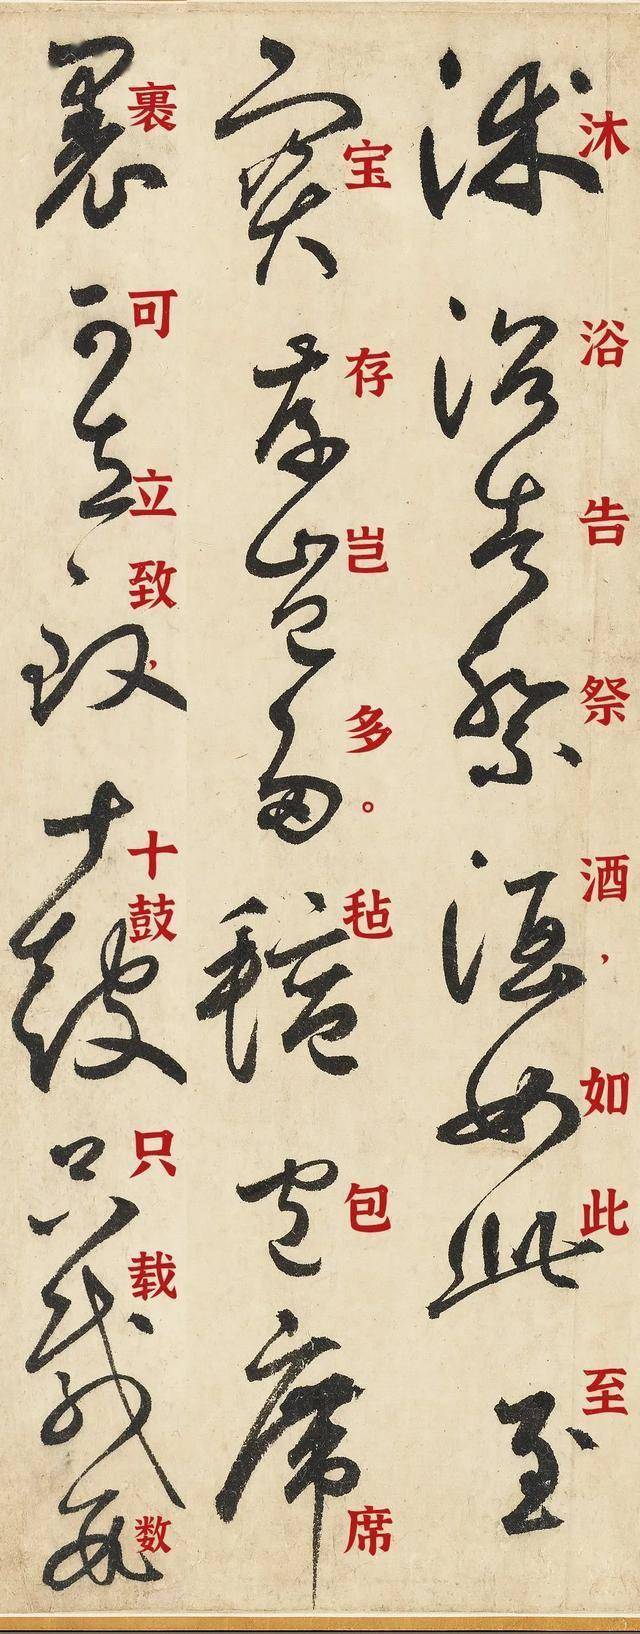 沐浴告祭酒,如此至
宝存岂多。毡包席
裹可立致,十鼓只载数